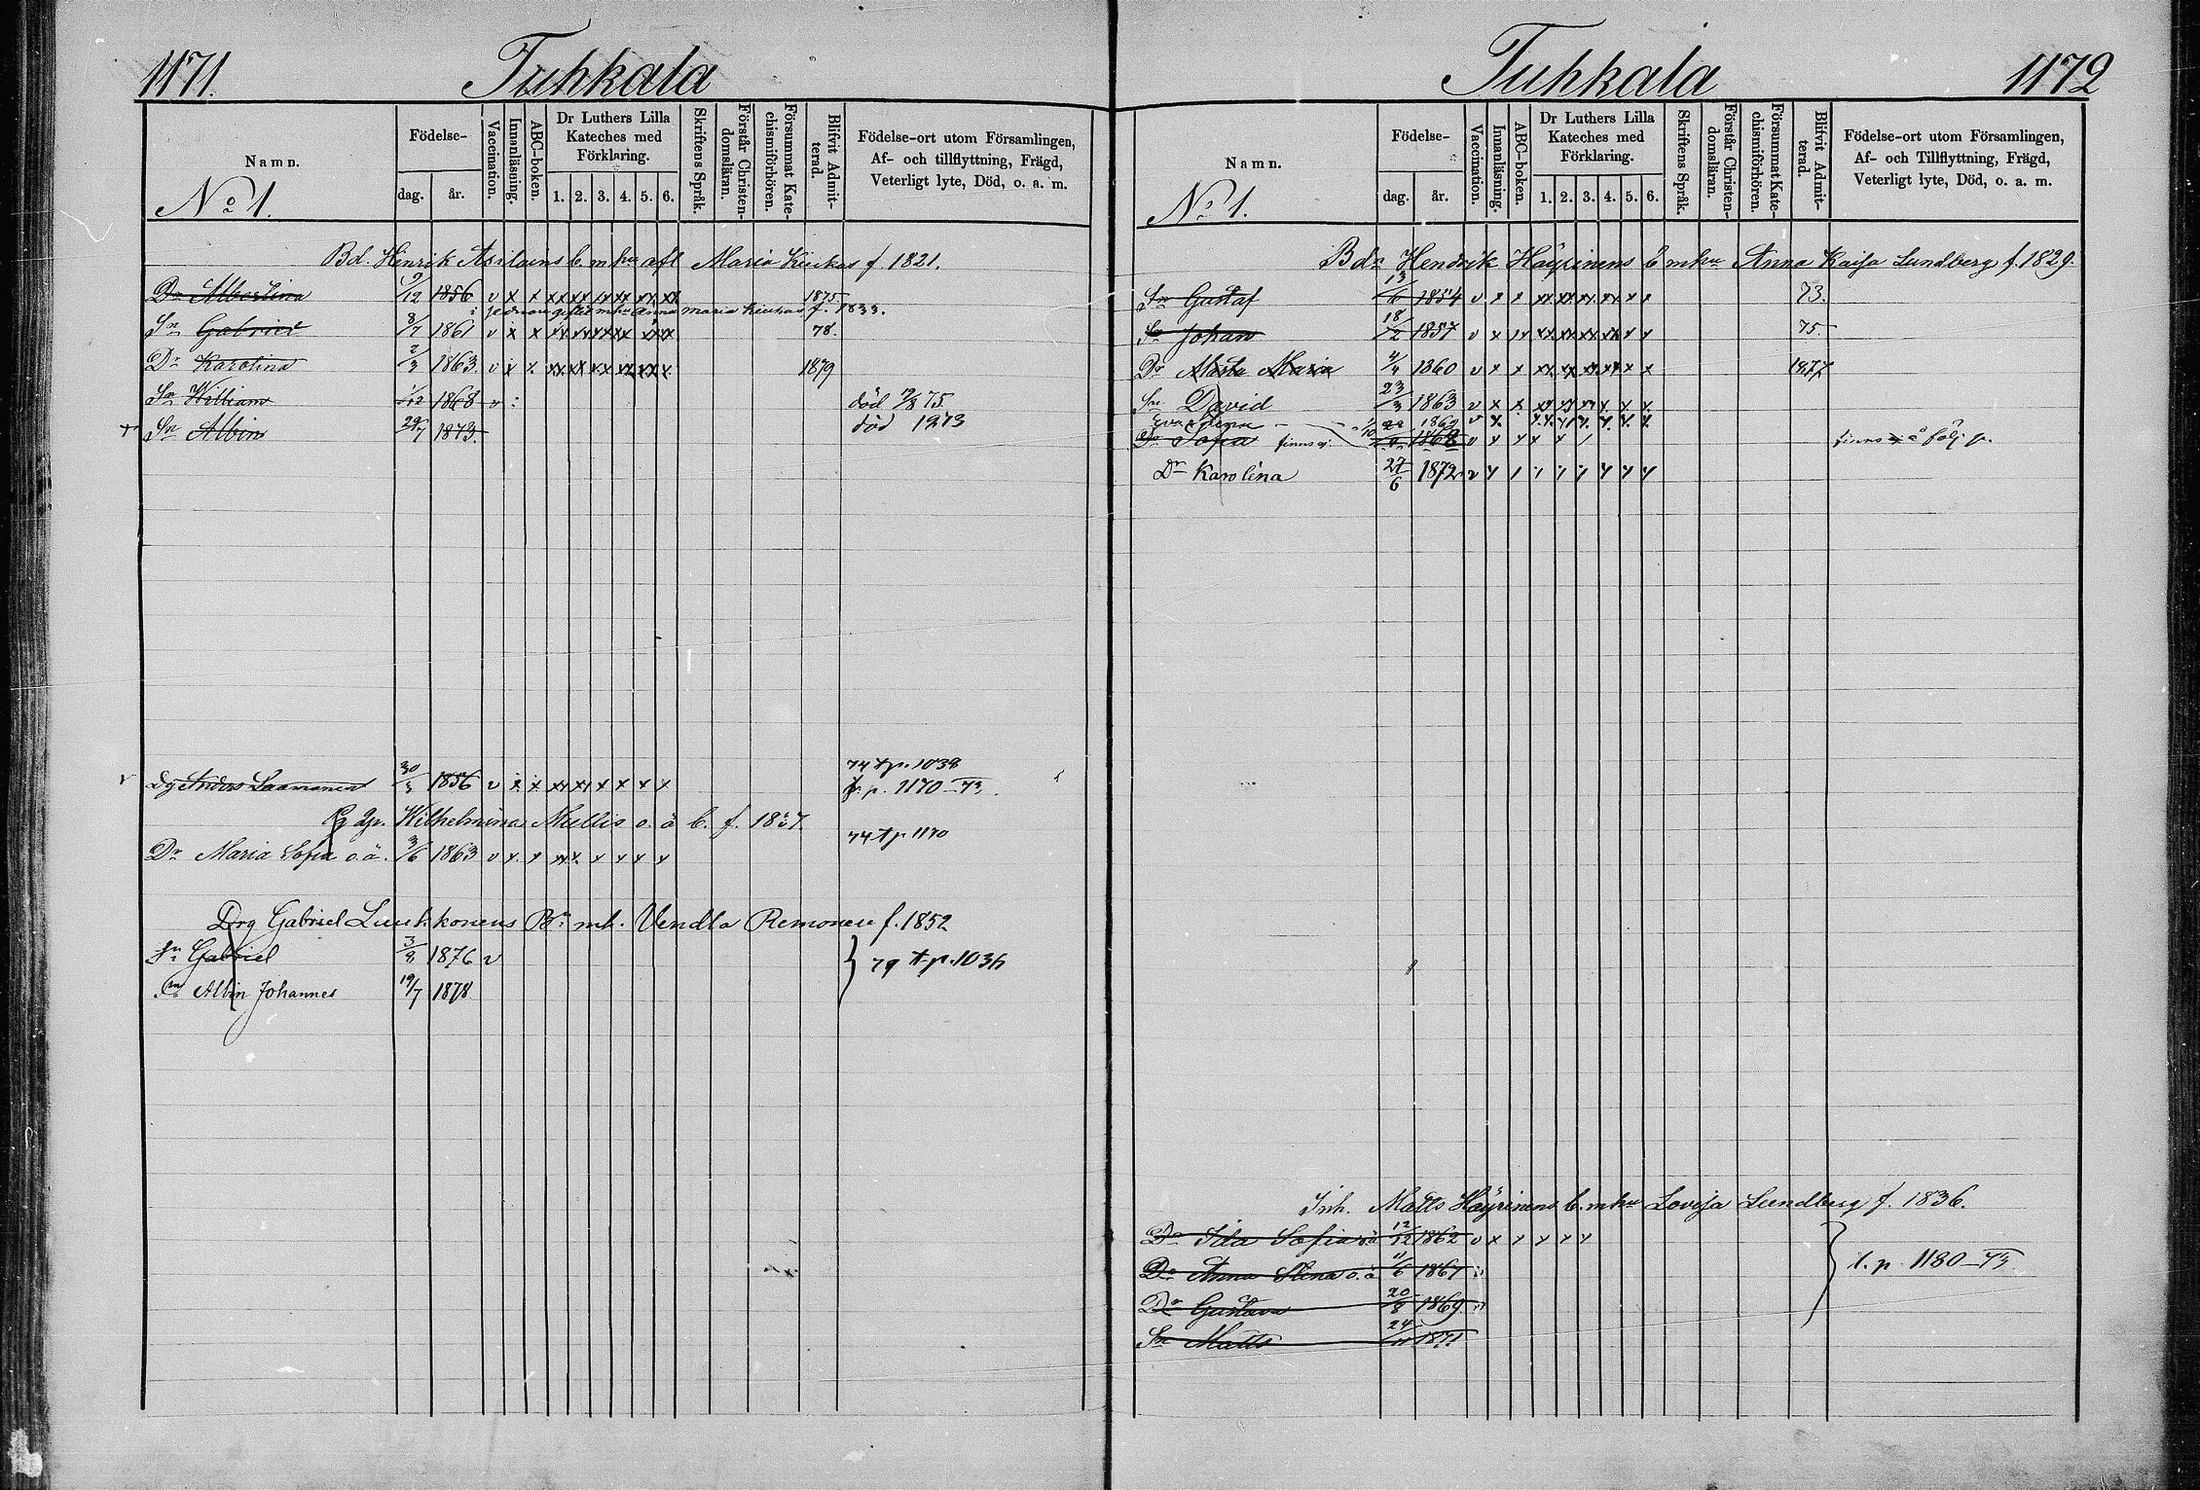 1171.
Tuhkala
Namn.
No 1.
Födelse-
dag.
år.
Vaccination.
Innanläsning.
ABC-boken.
Dr Luthers Lilla
Kateches med
Förklaring.
1. 2. 3. 4. 5. 6.
Skriftens Språk.
Förstår Christen-
domsläran.
Försummat Kate-
chismiförhören.
Blifvit Admit-
terad.
Födelse-ort utom Församlingen,
Af- och tillflyttning, Frägd,
Veterligt lyte, Död, o. a. m.
Bd. Henrik b. m hu afl Maria f. 1821.
Dr Albertina 9/12 1856 v x x xx xx xx xx xx xx 1875
gifte m hu Anna Maria f. 1833.
Sn Gabriel 8/7 1861 v x x xx xx xx xx xx xx 78.
Dr Karolina 2/3 1863. v x x xx xx xx xx xx x 1879
Sn William 1/12 1868 v död 75
+ Sn Albin 29/7 1873. död 1873
v Dg Anders Laamanen 30/3 1856 v x x xx xx x x x x 74 t p. 1038
p. 1170 – 73.
Wilhelmina Mellis o. ä b. f.
74 t p 1170
Dr Maria Sofia o. ä. 3/6 1863 v x x xx x x x x x
Drg Gabriel Luukkonens Br mh. Vendla Remonen f. 1852
Sn Gabriel 3/8 1876 v
} 79 t. p. 1036
Sn Albin Johannes 19/7 1878
Tuhkala
1172
Namn.
No 1.
Födelse-
dag.
år.
Vaccination.
Innanläsning.
ABC-boken.
Dr Luthers Lilla
Kateches med
Förklaring.
1. 2. 3. 4. 5. 6.
Skriftens Språk.
Förstår Christen-
domsläran.
Försummat Kate-
chismiförhören.
Blifvit Admit-
terad.
Födelse-ort utom Församlingen,
Af- och Tillflyttning, Frägd,
Veterligt lyte, Död, o. a. m.
Bdn Hendrik Häyrinens b m hu Anna Kaisa Lundberg f. 1829.
Sn Gustaf 13/6 1854 v x x xx xx xx xx x x 73.
Sn Johan 18/2 1857 v x x xx xx xx xx x x 75
Dr Maria 4/4 1860 v x x xx xx xx xx x x 1877
Sn David 23/3 1863 v x x xx xx xx x x x
Eva Stina
Dr Sofia finns ej 1868 v x x x x x finns å följ p.
Dr Karolina 27/6 1872 v
Inh. Matts Häyrinens b. m hu Lovisa Lundberg f. 1836.
Dr Ida Sofia o. ä 12/12 1862 v x x x x x
Dr Anna Stina o. ä 11/6 1867 v
} t. p. 1180 – 73
Dr Gustava 20/8 1869 v
Sn Matts 24/11 1871